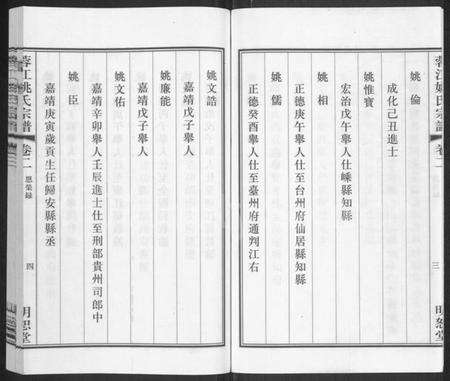 蓉江姚氏宗譜
卷二
三
明恕堂
姚倫
成化己丑進士
姚惟寶
宏治戊午舉人仕嵊縣知縣
姚相
正德庚午舉人仕至台州府仙居縣知縣
姚儒
正德癸酉舉人仕至臺州府通判江右
姚文誥
嘉靖戊子舉人
姚廉能
嘉靖戊子舉人
姚文佑
嘉靖辛卯舉人壬辰進士仕至刑部貴州司郎中
姚臣
嘉靖庚寅歲貢生任歸安縣縣丞
蓉江姚氏宗譜
卷二
恩榮錄
四
明恕堂